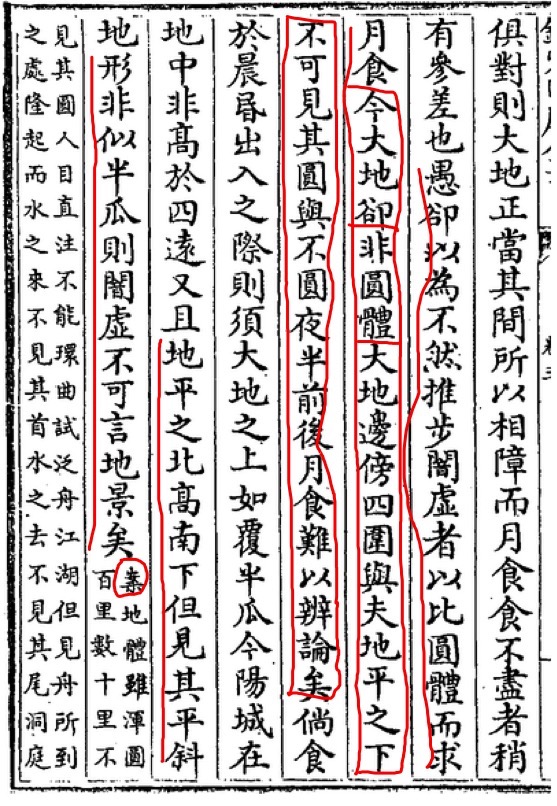 俱對則大地正當其間所以相障而月食食不盡者稍
有參差也愚卻以為不然推步闇虛者以比圓體而求
月食今大地卻非圓體大地邊傍四圍與夫地平之下
不可見其圓與不圓夜半前後月食難以辨論矣倘食
於晨昏出入之際則須大地之上如覆半瓜今陽城在
地中非高於四遠又且地平之北高南下但見其平斜
地形非似半瓜則闇虛不可言地景矣
案地體雖渾圓
百里數十里不
見其圓人目直注不能環曲試泛舟江湖但見舟所到
之處隆起而水之來不見其首水之去不見其尾洞庭